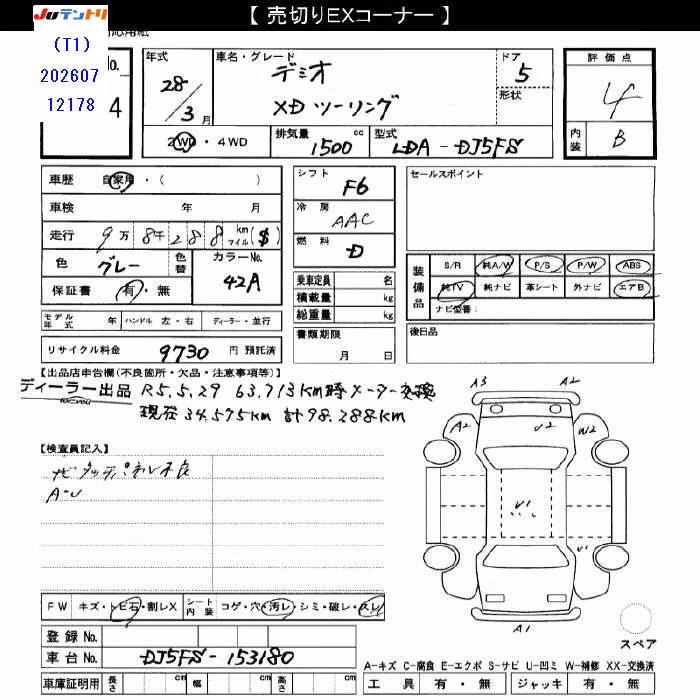 【 売切りEXコーナー 】
Juテントリ
(T1)
202607
12178
No.
4
年式
28/3月
車名・グレード
デミオ
XD ツーリング
ドア
5
形状
評価点
4
内装
B
2WD・4WD
排気量
1500 cc
型式
LDA-DJ5FS
車歴 自家用・( )
車検 年 月
走行 9万8千288 km マイル ($)
色 グレー 色替
カラーNo.
42A
保証書 有・無
モデル年式 年 ハンドル 左・右 ディーラー・並行
リサイクル料金 9730 円 預託済
シフト
F6
冷房
AAC
燃料
D
乗車定員 名
積載量 kg
総重量 kg
書類期限
月 日
セールスポイント
装備品
S/R 純A/W P/S P/W ABS
純TV 純ナビ 革シート 外ナビ エアB
ナビ型番:
後日品
【出品店申告欄(不良箇所・欠品・注意事項等)】
ディーラー出品 R5,5,29 63,713km時メーター交換
現在34,575km 計98,288km
【検査員記入】
ナビタッチパネル不良
A-U
A3 A2
A2 U2 W2
U1
U1
A1
スペア
FW キズ・トビ石・割レX シート内装 コゲ・穴・汚レ・シミ・破レ・スレ
登録No.
車台No. DJ5FS-153180
車庫証明用 長さ cm 幅 cm 高さ cm
A-キズ C-腐食 E-エクボ S-サビ U-凹ミ W-補修 XX-交換済
工具 有・無 ジャッキ 有・無